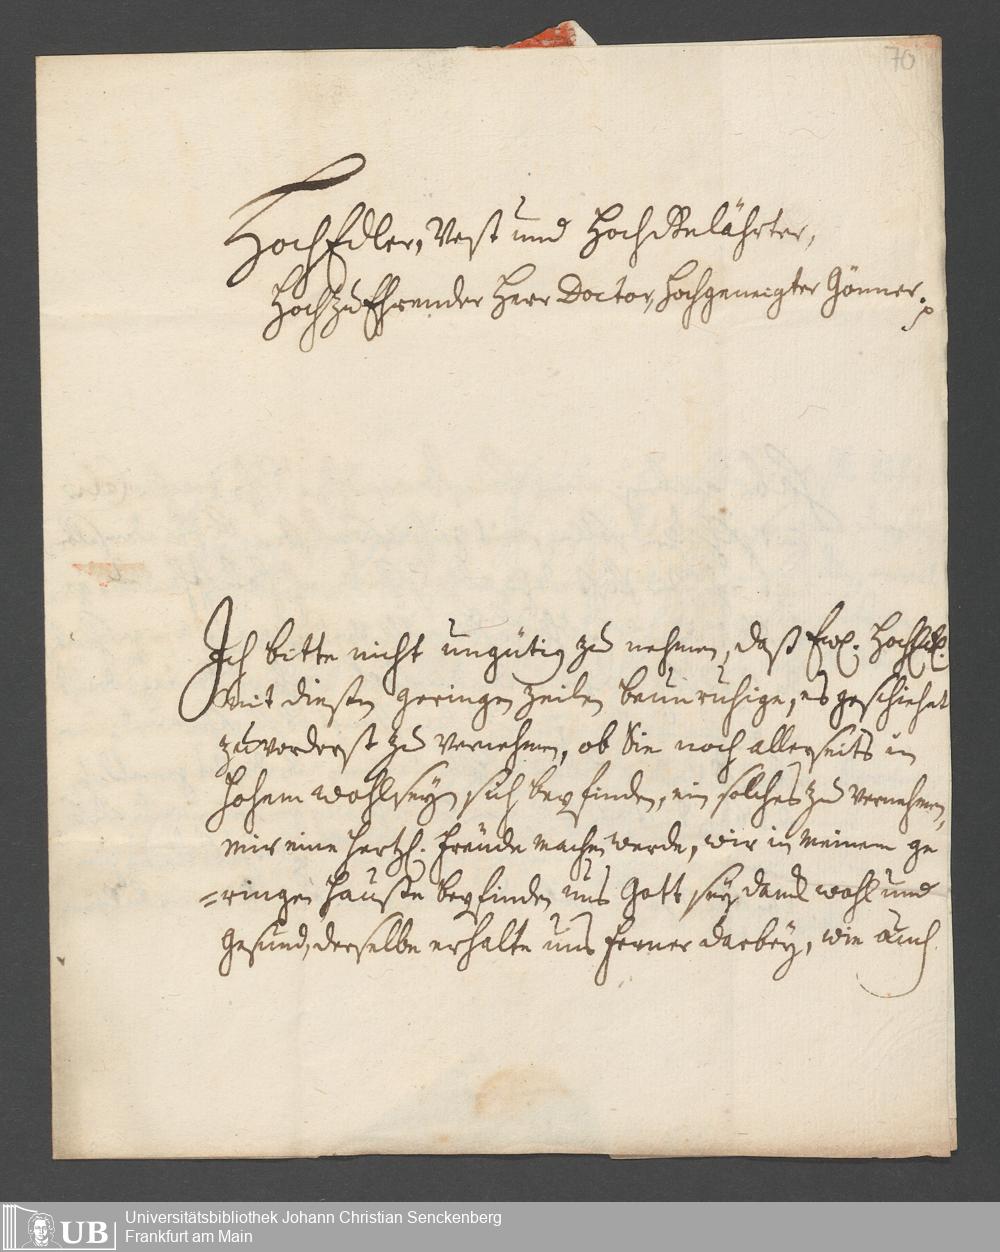 70
HochEdler, Vest und HochGelährter,
HochzuEhrender Herr Doctor, Hochgeneigter Gönner.
Ich bitte nicht ungütig zu nehmen, daß Ew. HochEd.
mit diesen geringen Zeilen beunruhige, es geschiehet
zuvorderst zu vernehmen, ob Sie noch allerseits in
hohem wohlseyn sich befinden, ein solches zu vernehmen,
mir eine hertzl. freude machen werde, wir in meinem ge
=ringen Hauße befinden uns Gott sey danck wohl und
gesund, derselbe erhalte uns ferner darbey, wie auch
UB
Universitätsbibliothek Johann Christian Senckenberg
Frankfurt am Main